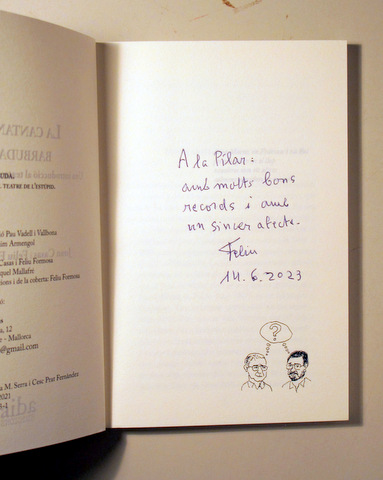 LA CANTAN
BARBUDA
UDA.
L TEATRE DE L'ESTÚPID.
ó Pau Vadell i Vallbona
im Armengol
Casas i Feliu Formosa
quel Mallafré
ions i de la coberta: Feliu Formosa
ó:
a, 12
e - Mallorca
@gmail.com
a M. Serra i Cesc Prat Fernández
2021
3-1
A la Pilar:
amb molts bons
records i amb
un sincer afecte.
Feliu
14.6.2023
?